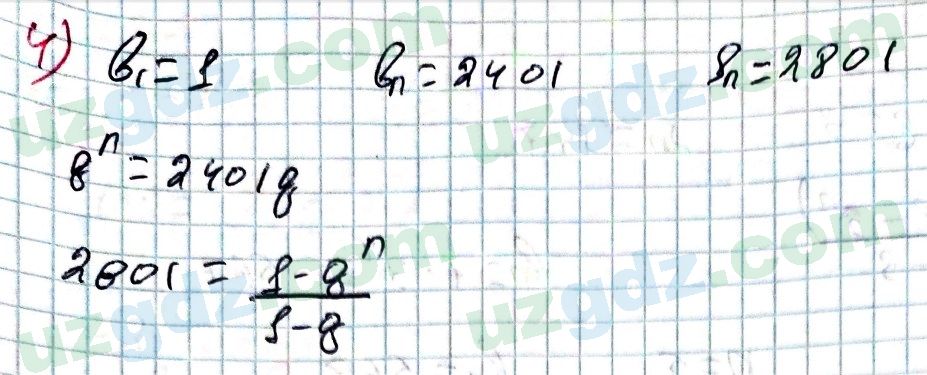 4) b₁ = 1 bₙ = 2401 Sₙ = 2801
qⁿ = 2401q
2801 = (1 - qⁿ) / (1 - q)
uzgdz.com
uzgdz.com
uzgdz.com
uzgdz.com
uzgdz.com
uzgdz.com